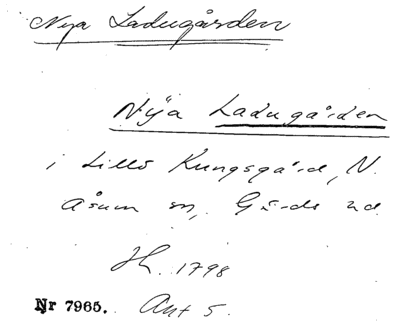 Nya Ladugården
Nÿa Ladugården
i Lillö Kungsgård, N.
Åsum sn, Gärds hd.
H. 1798
Nr 7965. Ant 5.